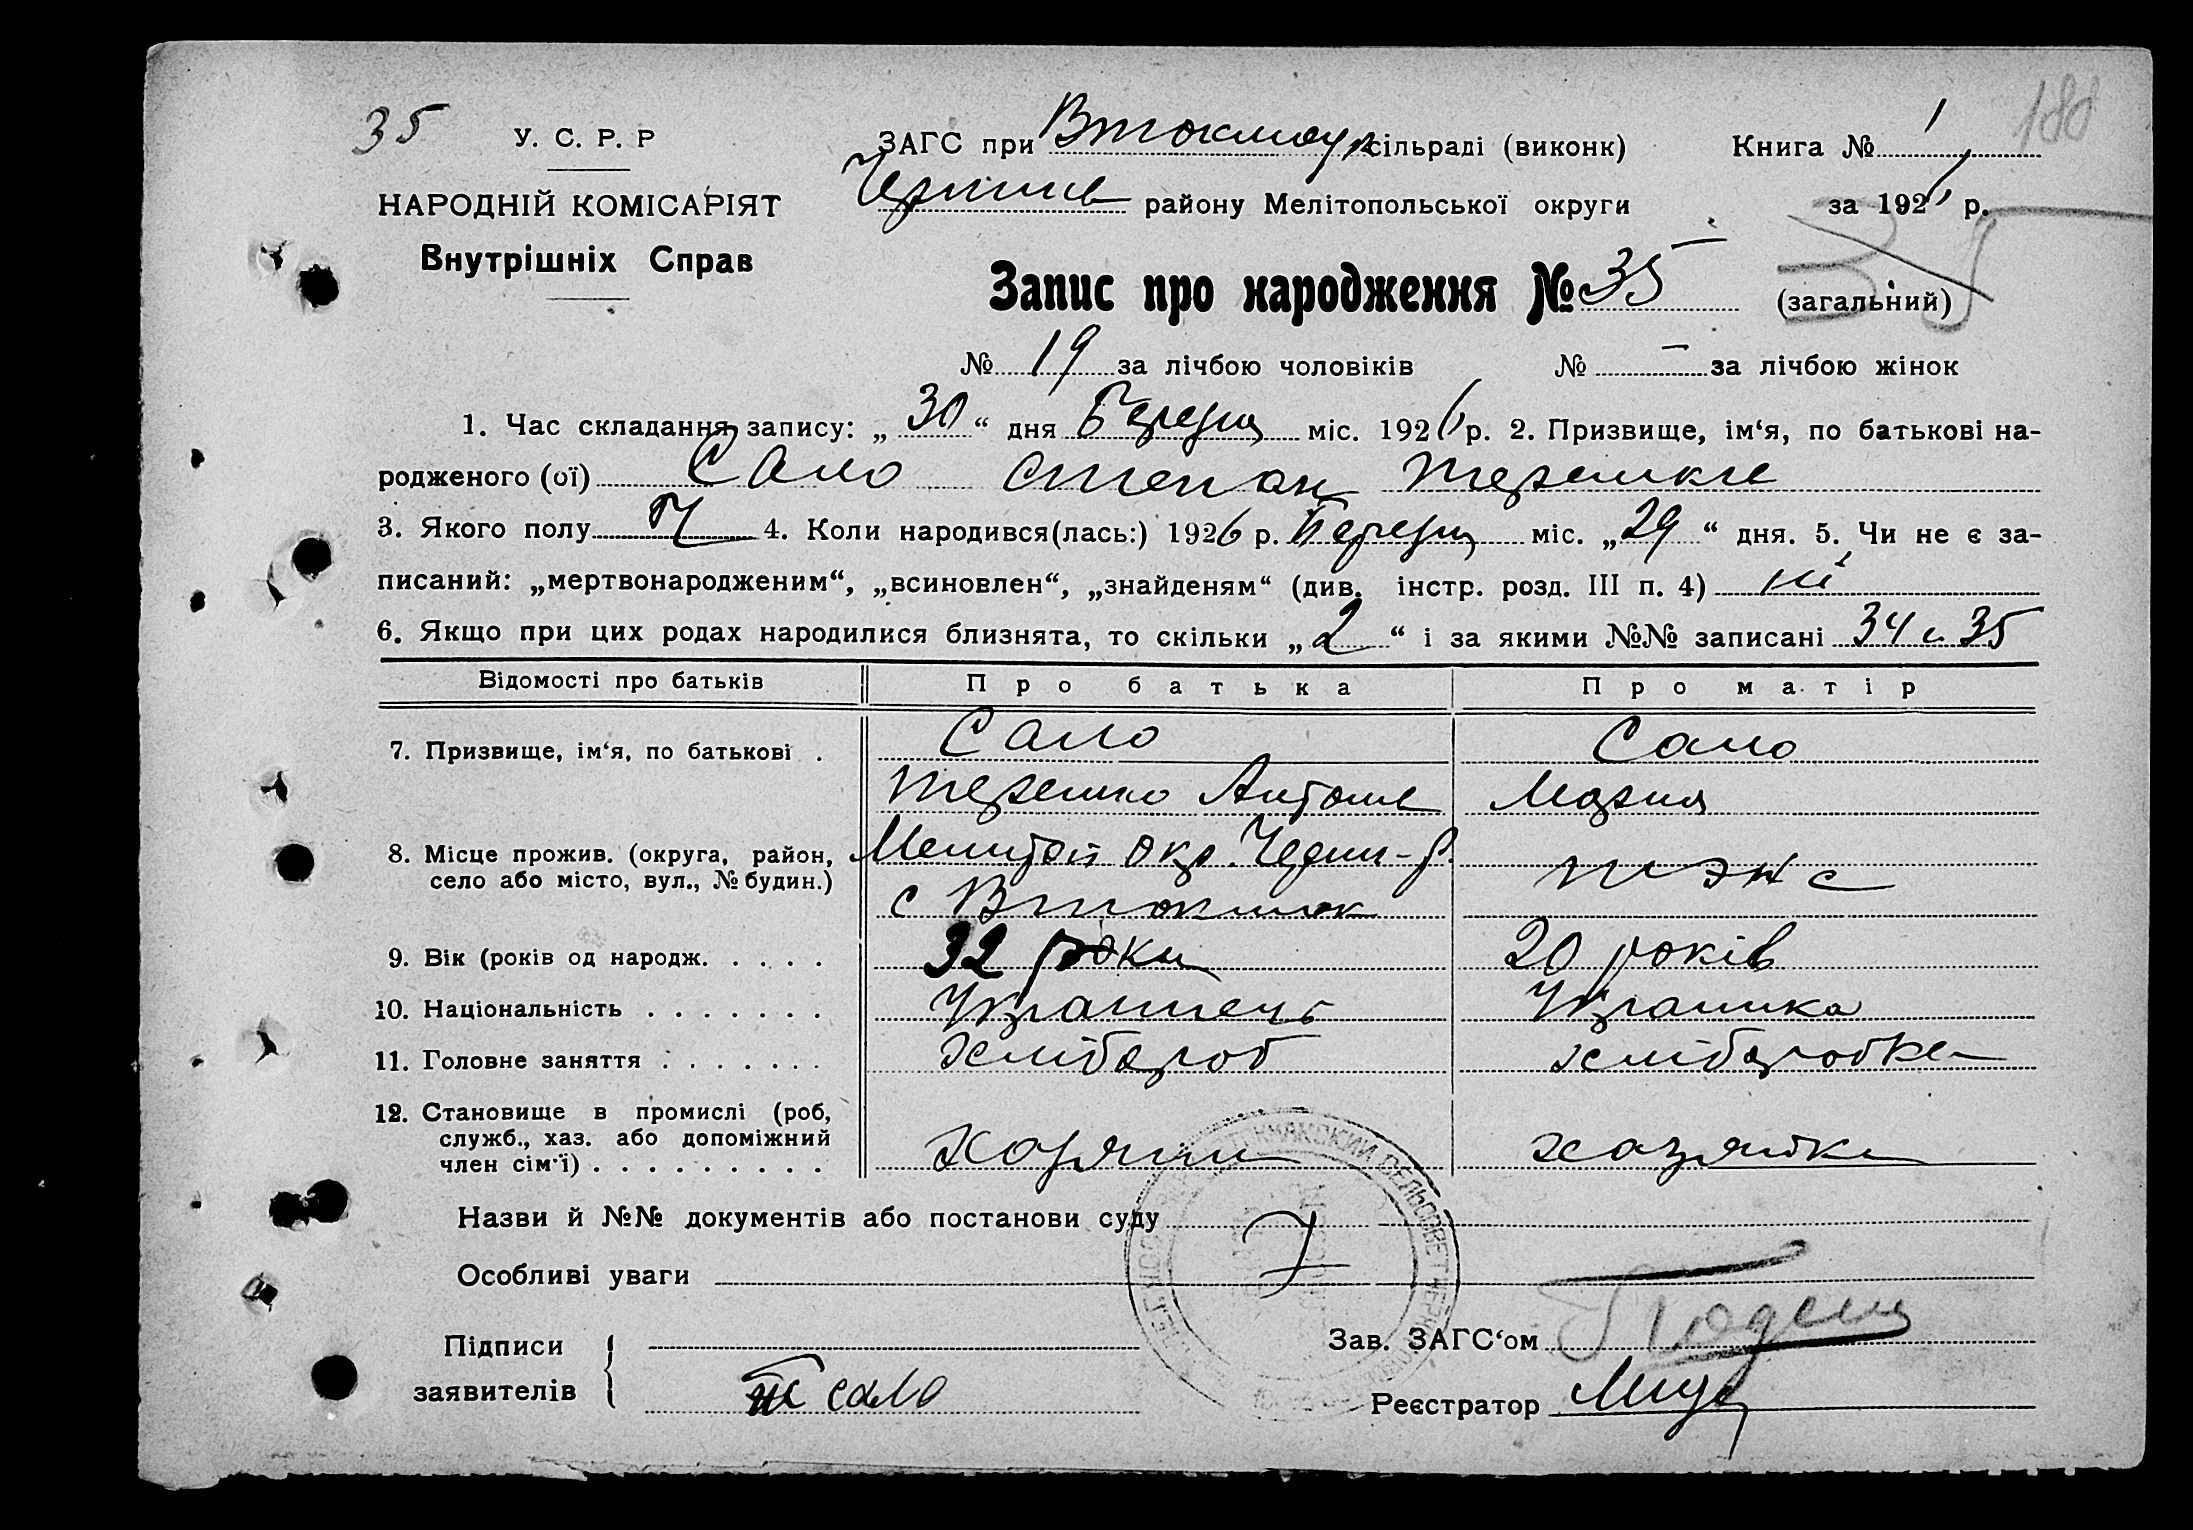 35 У. С. Р. Р ЗАГС при Втокмау сільраді (виконк) Книга № 1 180
НАРОДНІЙ КОМІСАРІЯТ району Мелітопольської округи за 1926 р.
Внутрішніх Справ
Запис про народження № 35 (загальний) 35
№ 19 за лічбою чоловіків № – за лічбою жінок
1. Час складання запису: „ 30 “ дня Березня міс. 1926 р. 2. Призвище, ім‘я, по батькові на-
родженого (ої) Сало Степан Терешкие
3. Якого полу Ч 4. Коли народився(лась:) 1926 р. Березня міс. „ 29 “ дня. 5. Чи не є за-
писаний: „мертвонародженим“, „всиновлен“, „знайденям“ (див. інстр. розд. III п. 4) ні
6. Якщо при цих родах народилися близнята, то скільки „ 2 “ і за якими №№ записані 34 и 35
Відомості про батьків Про батька Про матір
7. Призвище, ім‘я, по батькові . Сало Сало
Терешко Антоно Мария
8. Місце прожив. (округа, район, Мелитоп окр. Черниг-р.
село або місто, вул., № будин.) тэж с
с Втокмак
9. Вік (років од народж. . . . . 32 роки 20 років
10. Національність . . . . . . . Українець Українка
11. Головне заняття . . . . . . . хлібороб хліборобка
12. Становище в промислі (роб,
служб., хаз. або допоміжний хозяин хазяйка
член сім‘ї) . . . . . . . . .
Назви й №№ документів або постанови суду
Особливі уваги
Підписи Зав. ЗАГС‘ом
заявителів Т Сало Реєстратор